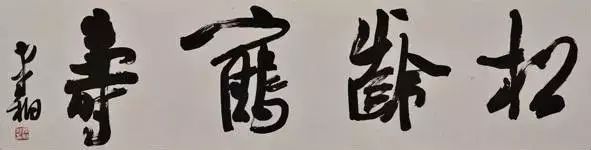 松齡鶴壽